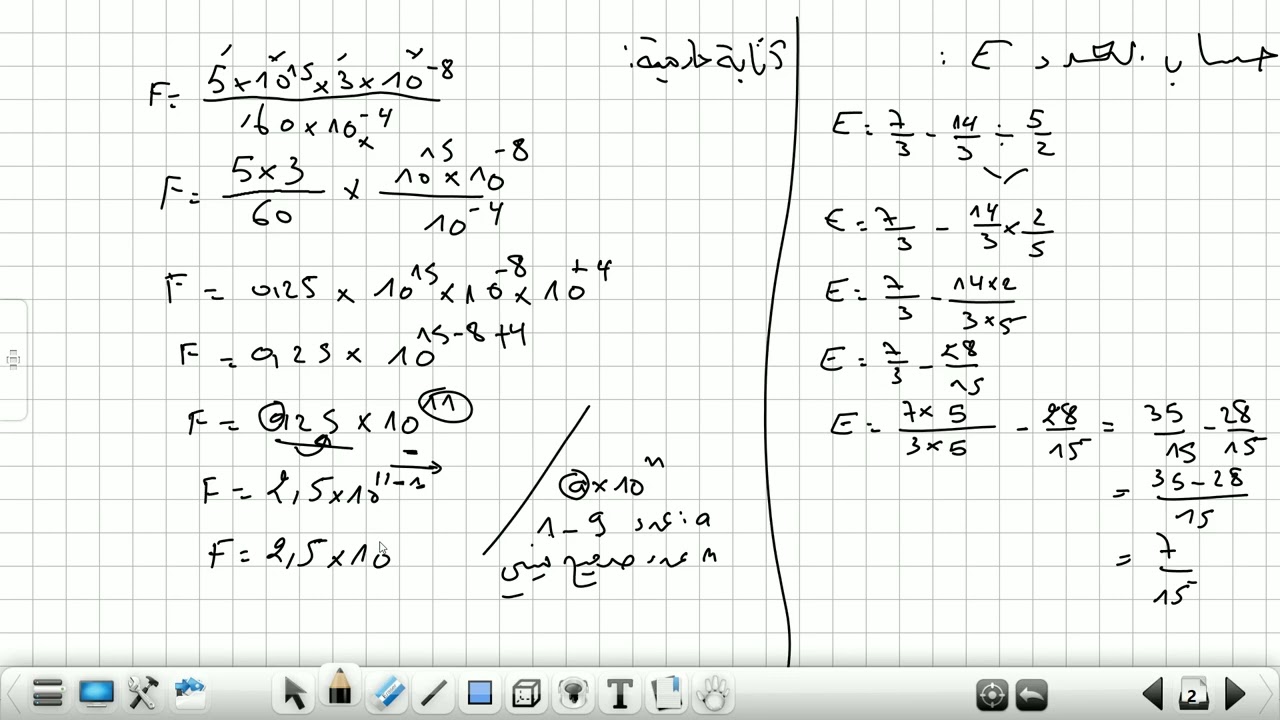 حساب العدد E :
E = 7/3 - 14/3 ÷ 5/2
E = 7/3 - 14/3 × 2/5
E = 7/3 - 14×2/3×5
E = 7/3 - 28/15
E = 7×5/3×5 - 28/15 = 35/15 - 28/15
= 35-28/15
= 7/15
كتابة علمية:
F = 5×10^15×3×10^-8/60×10^-4
F = 5×3/60 × 10^15×10^-8/10^-4
F = 0,25 × 10^15×10^-8×10^+4
F = 0,25 × 10^15-8+4
F = 0,25 × 10^11
F = 2,5×10^11-1
F = 2,5×10
a×10^n
a: عدد 1-9
n عدد صحيح نسبي
2